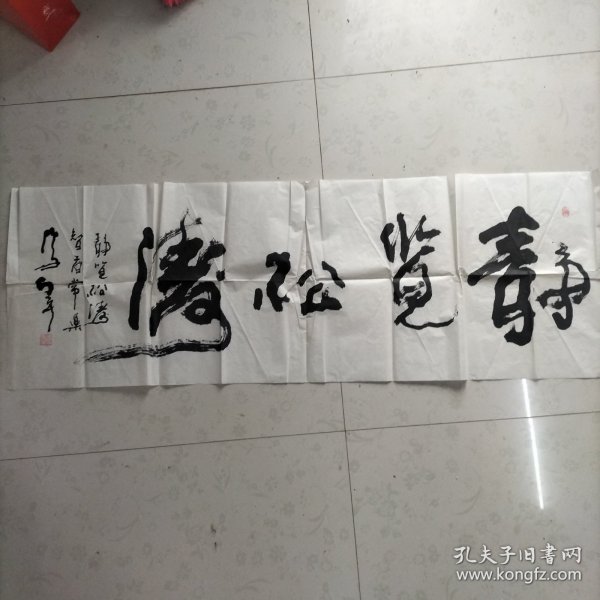 静览松涛
静览松涛
智者常乐
孔夫子旧书网
www.kongfz.com